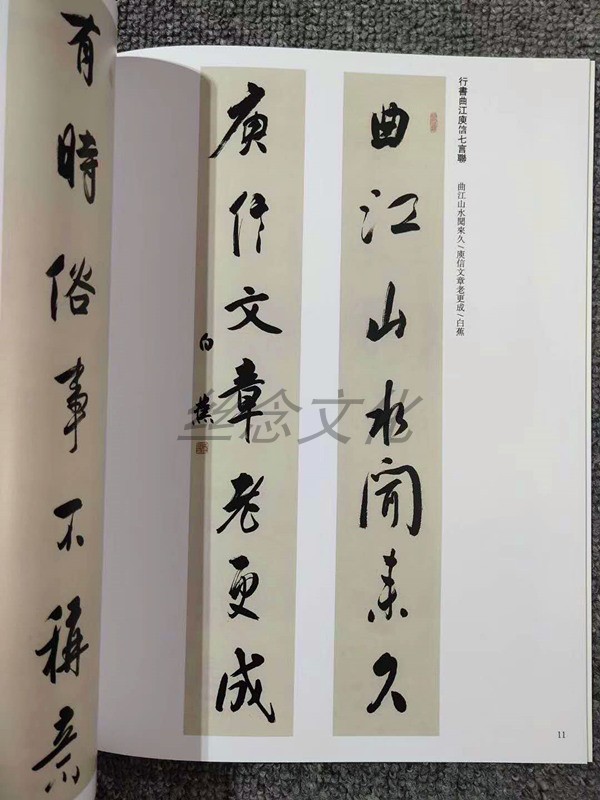 行書曲江庾信七言聯
曲江山水聞來久/庾信文章老更成/白蕉
曲江山水聞来久
庾信文章老更成
白蕉
有時俗事不稱意
丝念文化
11